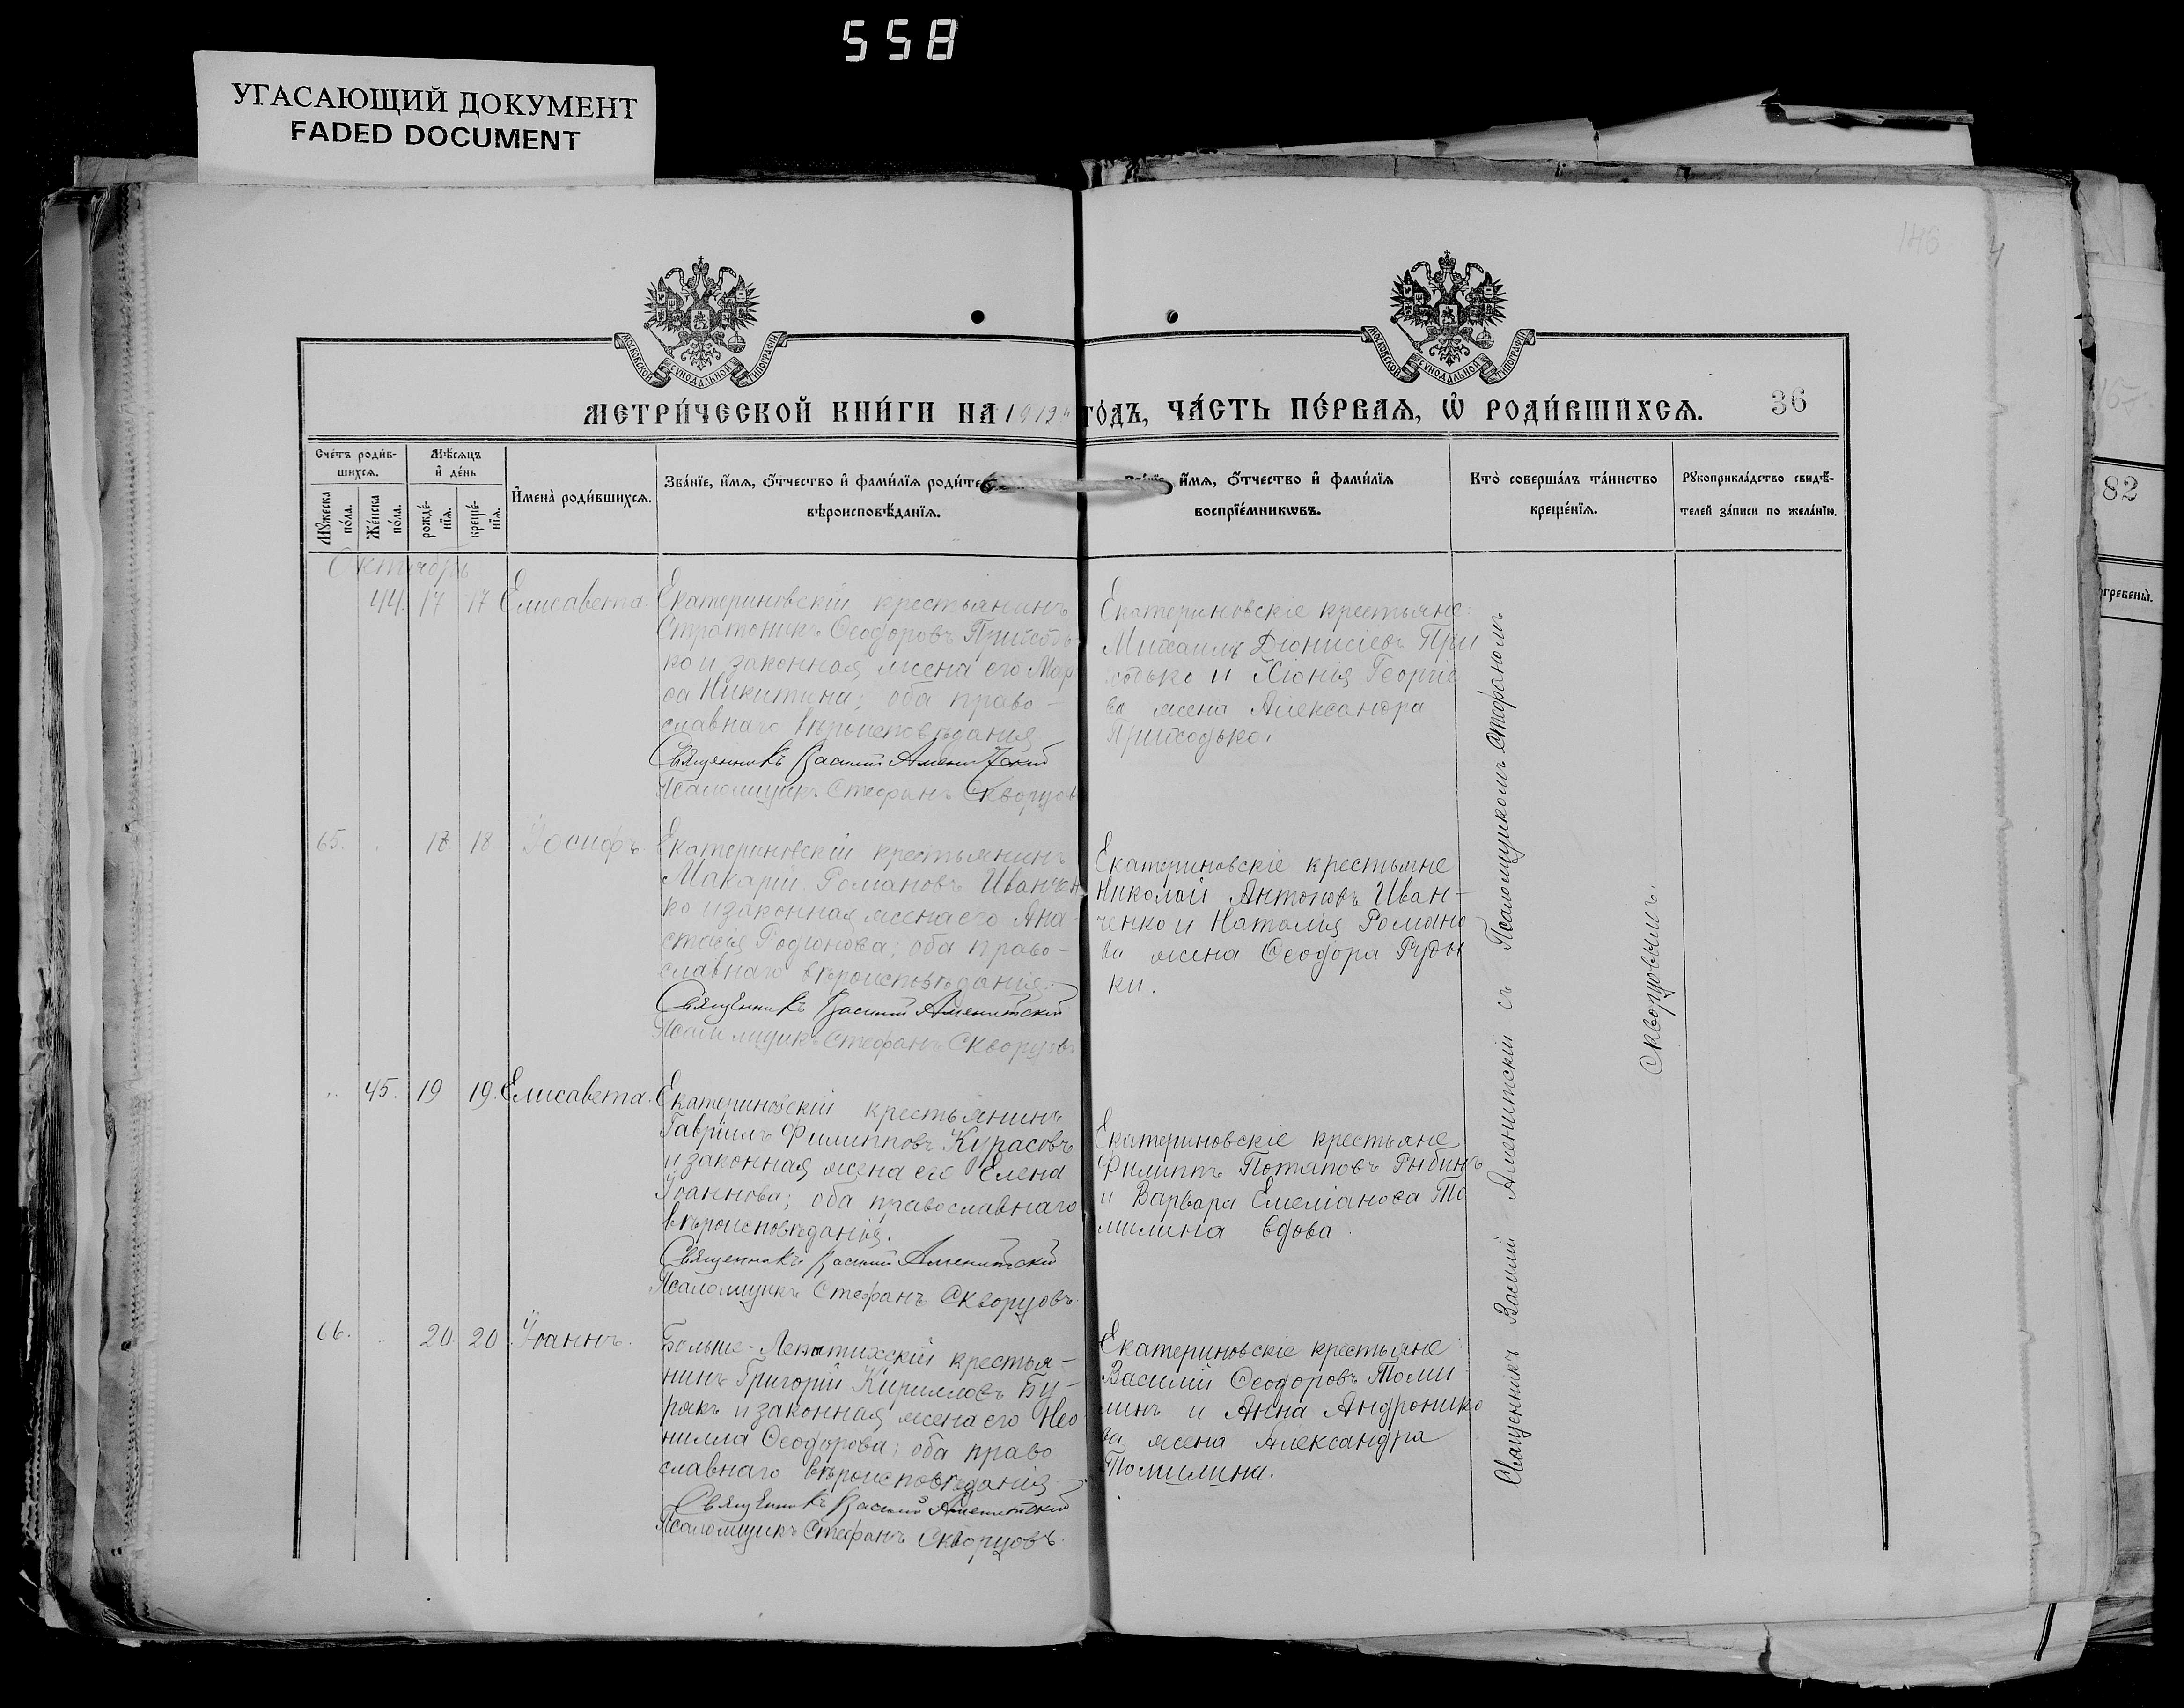 558
УГАСАЮЩИЙ ДОКУМЕНТ
FADED DOCUMENT
146
МОСКОВСКОЙ СУНОДАЛЬНОЙ ТИПОГРАФІИ
МОСКОВСКОЙ СУНОДАЛЬНОЙ ТИПОГРАФІИ
МЕТРИ́ЧЕСКОЙ КНИ́ГИ НА 1912 ГО́ДЪ, ЧА́СТЬ ПЕ́РВАЯ, Ѡ҆ РОДИ́ВШИХСЯ. 36
Сче́тъ роди́в-
шихся.
Мꙋ́жеска по́ла.
Же́нска по́ла.
Мѣ́сяцъ и҆ де́нь
рожде́-
нїя.
креще́-
нїя.
И҆мена̀ роди́вшихся.
Зва́нїе, и҆́мя, ѻ҆́тчество и҆ фами́лїя
вѣроисповѣ́данїя.
и҆́мя, ѻ҆́тчество и҆ фами́лїя
воспрїе́мникѡвъ.
Кто̀ соверша́лъ та́инство
креще́нїя.
Рꙋкоприкла́дство свидѣ́-
телей за́писи по жела́нїю.
82
Октябрь
44. 17 17 Елисавета.
Екатериновскій крестьянинъ
Стратоникъ Ѳеодоровъ Приходь
ко и законная жена его Мар
ѳа Никитина; оба право-
славнаго вѣроисповѣданія
Священникъ Василій Аменитскій
Псаломщикъ Стефанъ Скворцовъ
Екатериновскіе крестьяне:
Михаилъ Діонисіевъ При
ходько и Хіонія Георгіе
ва жена Александра
Приходько.
65. 18 18 Іосифъ
Екатериновскій крестьянинъ
Макарій Романовъ Иванчен
ко и законная жена его Ана-
стасія Родіонова; оба право-
славнаго вѣроисповѣданія.
Священникъ Василій Аменитскій
Псаломщикъ Стефанъ Скворцовъ
Екатериновскіе крестьяне
Николай Антоновъ Иван-
ченко и Наталія Романо
ва жена Ѳеодора Рудн
ки.
45. 19 19. Елисавета.
Екатериновскій крестьянинъ
Гавріилъ Филипповъ Курасовъ
и законная жена его Елена
Іоаннова; оба православнаго
вѣроисповѣданія.
Священникъ Василій Аменитскій
Псаломщикъ Стефанъ Скворцовъ.
Екатериновскіе крестьяне
Филиппъ Потаповъ Рыбинъ
и Варвара Емеліанова То
милина вдова.
66. 20 20 Іоаннъ.
Больше-Лепатихскій крестья-
нинъ Григорій Кирилловъ Бу-
рякъ и законная жена его Нео
нилла Ѳеодорова; оба право
славнаго вѣроисповѣданія
Священникъ Василій Аменитскій
Псаломщикъ Стефанъ Скворцовъ.
Екатериновскіе крестьяне:
Василій Ѳеодоровъ Томи
линъ и Анна Андронико
ва жена Александра
Томилина.
Священникъ Василій Аменитскій съ Псаломщикомъ Стефаномъ
Скворцовымъ.